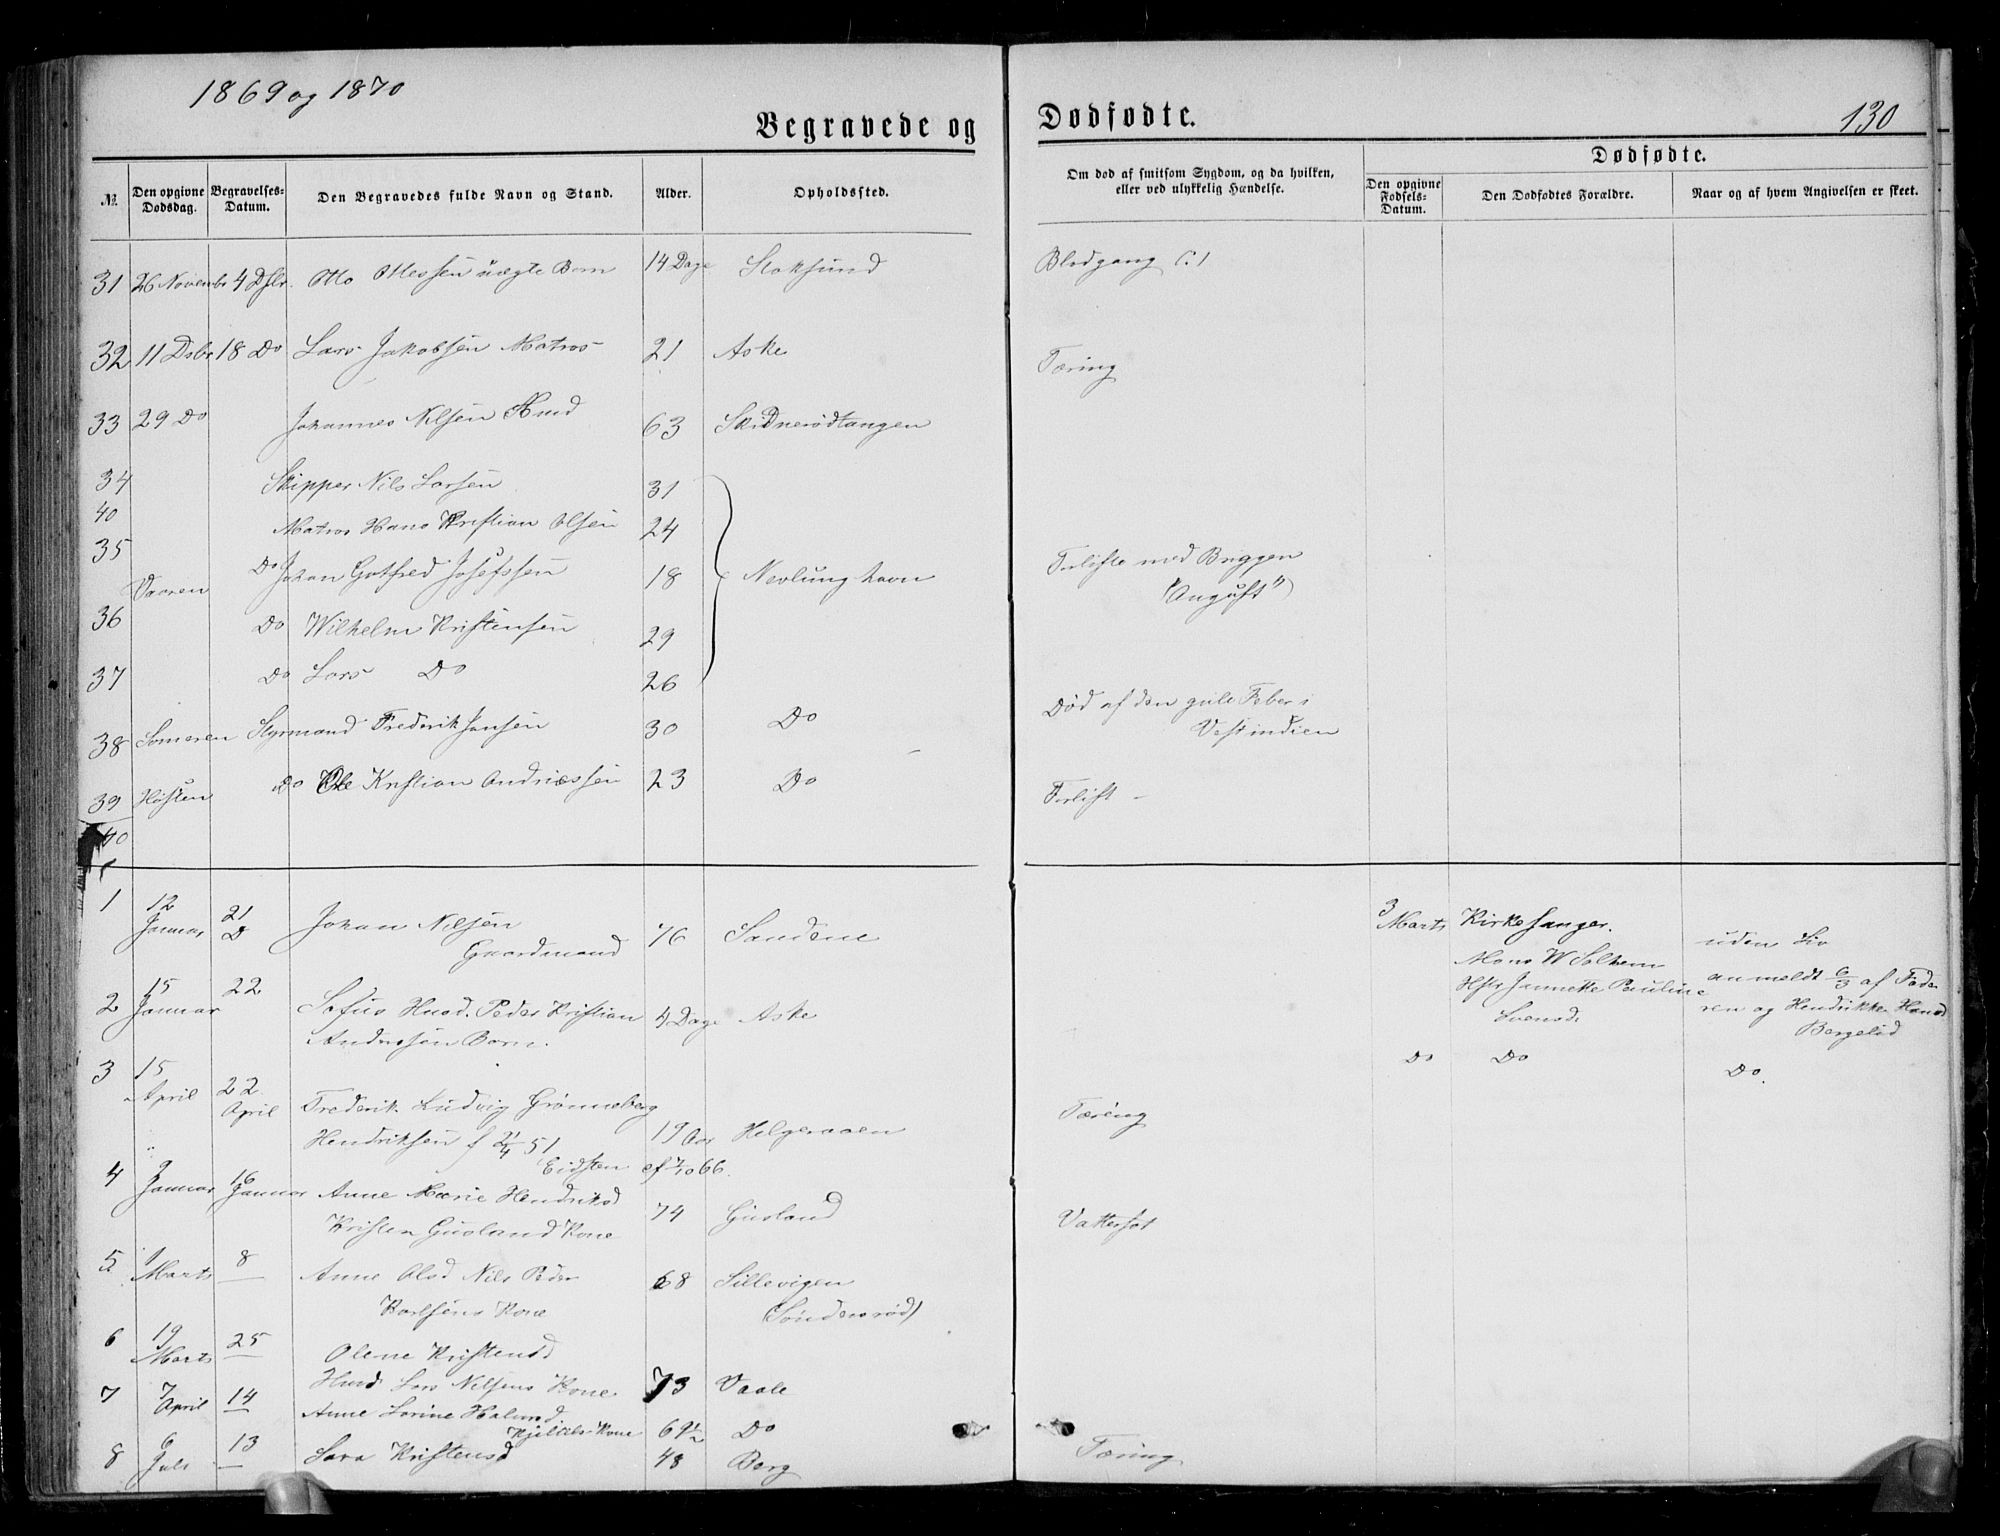 1869 og 1870
Begravede og Dødfødte.
130
№.
Den opgivne Dødsdag.
Begravelses-Datum.
Den Begravedes fulde Navn og Stand.
Alder.
Opholdssted.
Om død af smitsom Sygdom, og da hvilken, eller ved ulykkelig Hændelse.
Dødfødte.
Den opgivne Fødsels-Datum.
Den Dødfødtes Forældre.
Naar og af hvem Angivelsen er skeet.
31 26 Novembr 4 Dsbr. Otto Ottessen uægte Barn 14 Dage Stoksund Blodgang
32 11 Dsbr 18 Do Lars Jakobsen Matros 21 Aske Tæring
33 29 Do Johannes Nilsen Hmd 63 Skidnerødtangen
34 Skipper Nils Larsen 31
40 Matros Hans Kristian Olsen 24
35 Do Johan Gotfred Josefssen 18 Nevlunghavn Forliste med Briggen
Vaaren "August"
36 Do Wilhelm Kristensen 29
37 Do Lars Do 26
38 Someren Styrmand Frederik Jansen 30 Do Død af den gule Feber i
Vestindien
39 Høsten Do Ole Kristian Andriassen 23 Do Forlist
40
1 12 Januar 21 D Johan Nilsen
Gaardmand 76 Sandene
3 Marts Kirkesanger.
Mons W Solhem
Hstr Jannette Pauline
Svensd.
uden Liv
anmeldt 6/3 af Fade
ren og Hendrikke Hansd
Bergelid
2 15 Januar 22 Sofus Husd. Peder Kristian
Andersen Barn. 4 Dage Aske
Do Do Do.
3 15 April 22 April Frederik Ludvig Grønneberg
Hendriksen f 21/4 51 19 Aar Helgeraaen Tæring
Eidsten cf 7/10 66.
4 9 Januar 16 Januar Anne Marie Hendriksd
Kristen Gusland Kone 74 Gusland Vattersot
5 1 Marts 8 Anne Olsd Nils Peder
Karlsens Kone 68 Sillevigen
(Søndersrød)
6 19 Marts 25 Olene Kristensd
Husd Lars Nilsens Kone 73 Vaale
7 7 April 14 Anne Larine Halvorsd
Kjeldsls Kone 69½ Do
8 6 Juli 13 Sara Kristensd 48 Berg Tæring